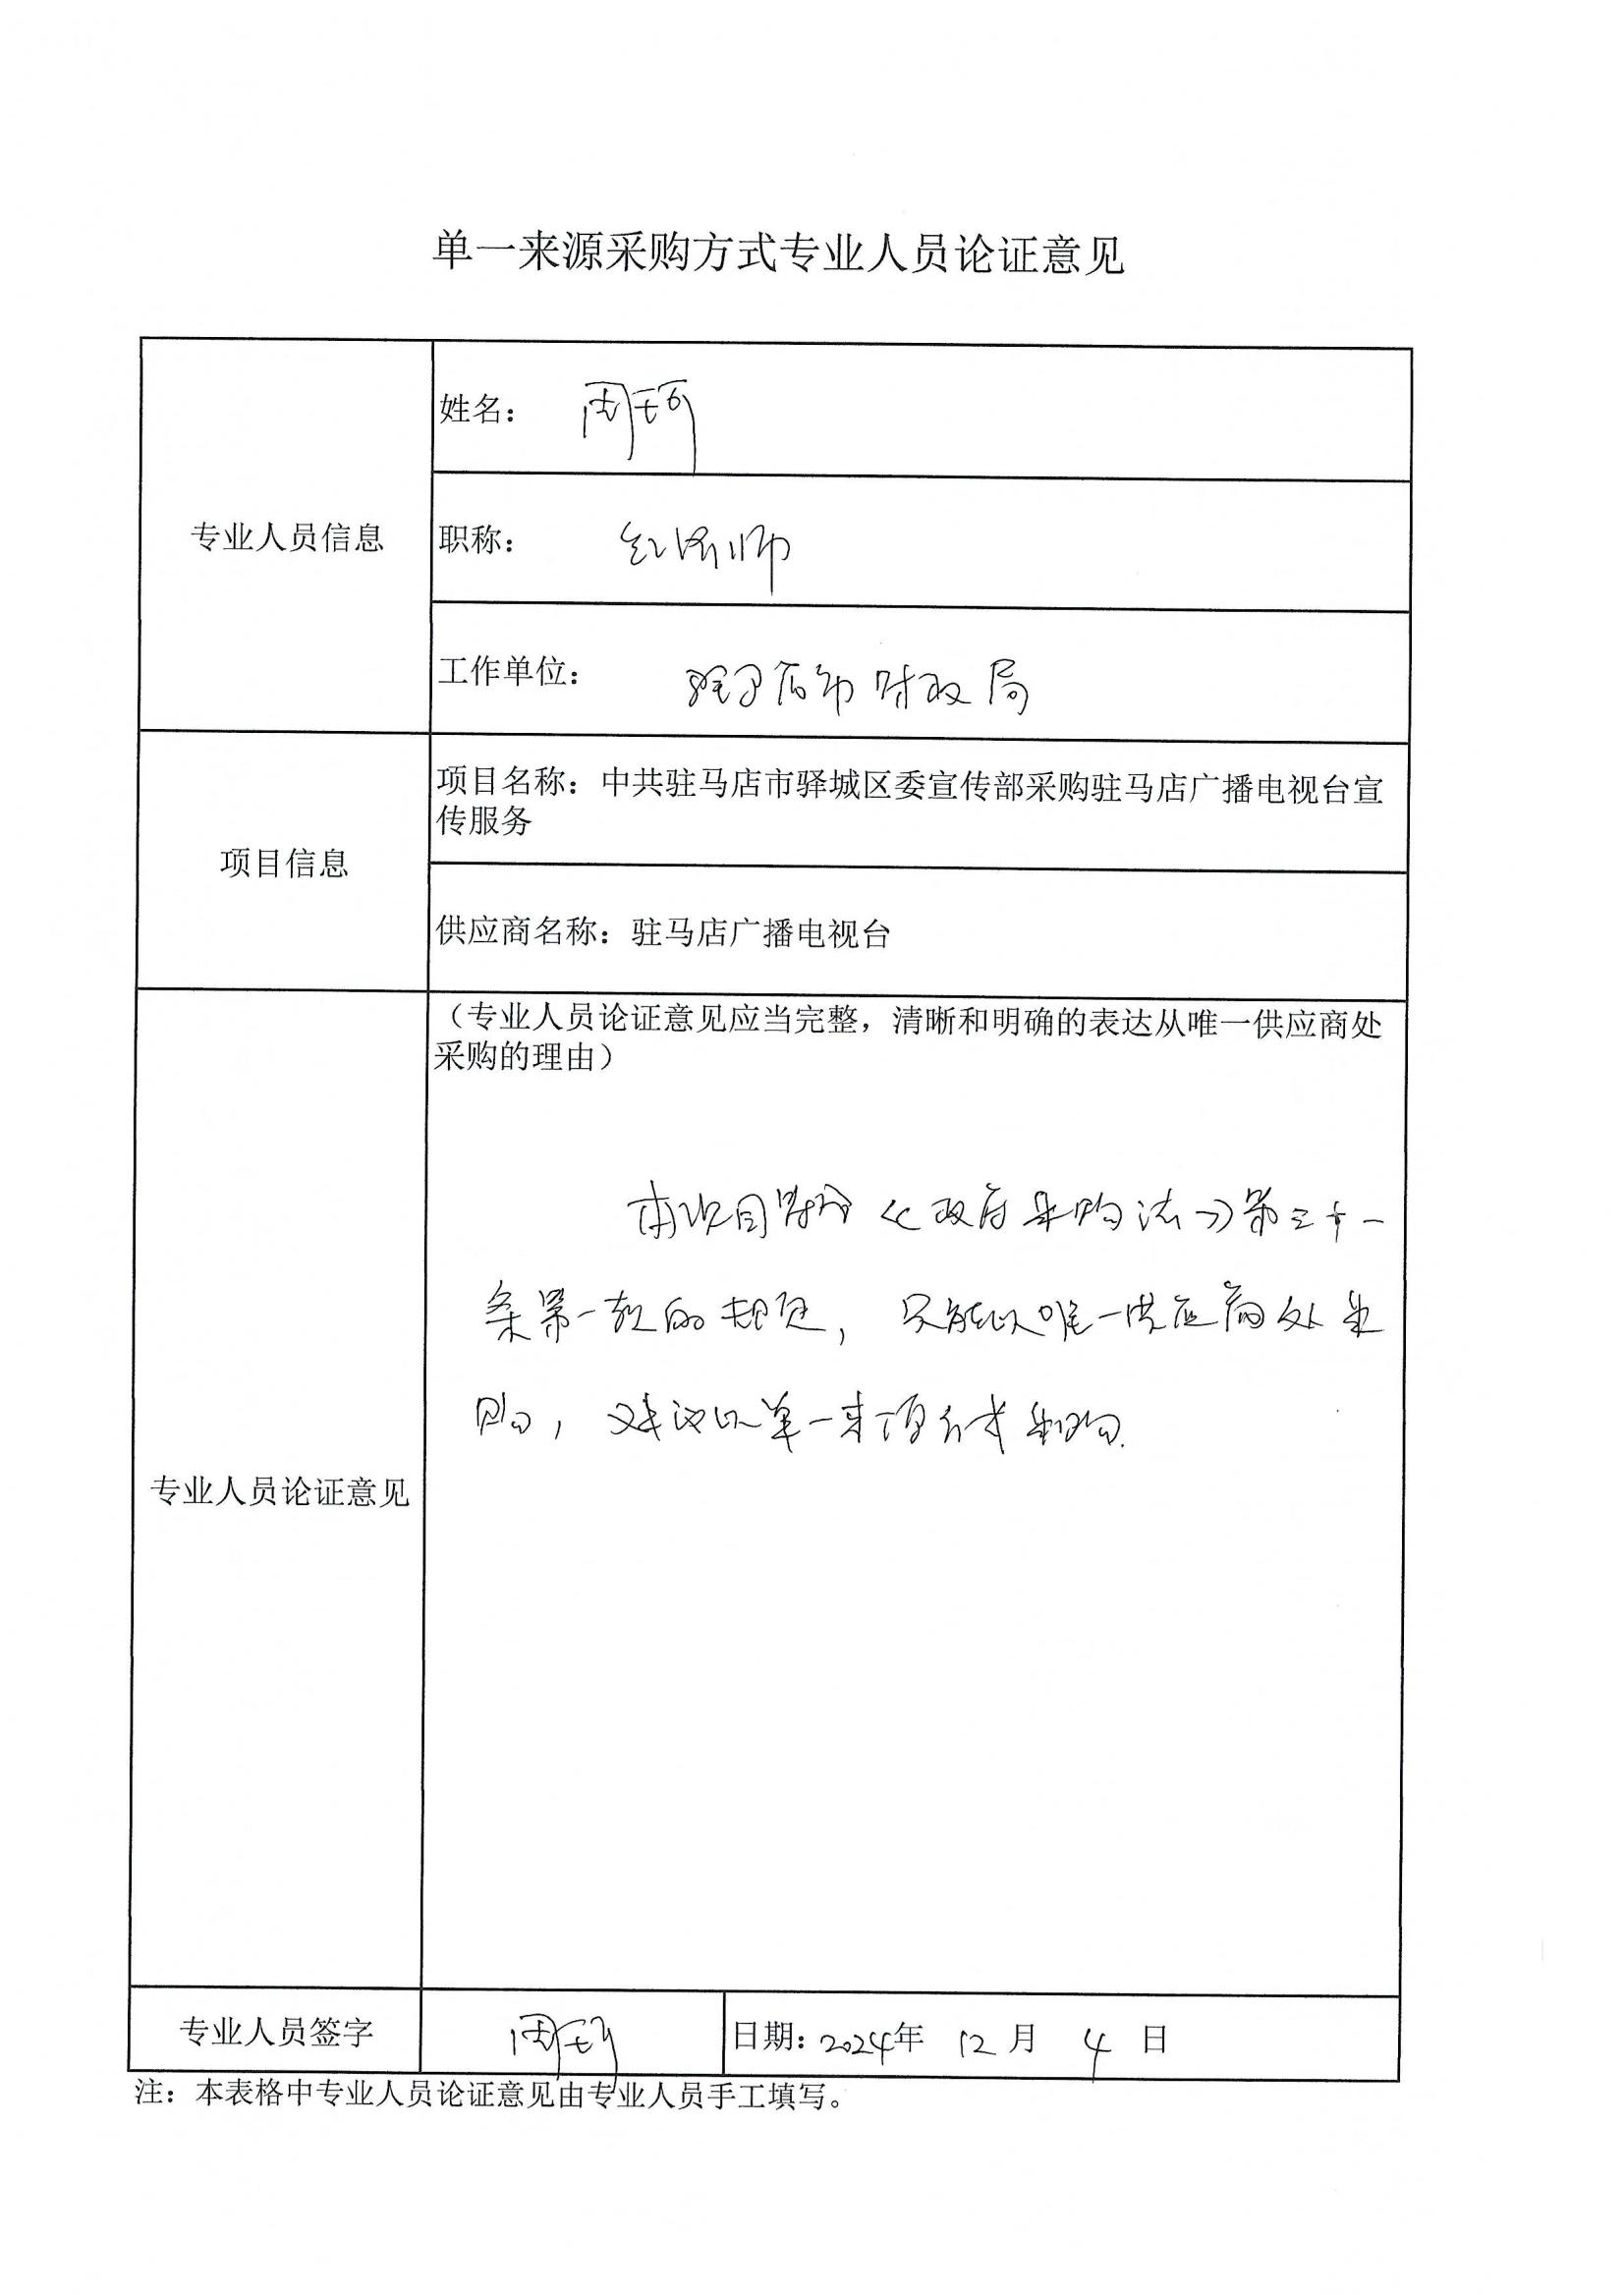 单一来源采购方式专业人员论证意见
专业人员信息
姓名： 周珂
职称： 经济师
工作单位： 驻马店市财政局
项目信息
项目名称：中共驻马店市驿城区委宣传部采购驻马店广播电视台宣
传服务
供应商名称：驻马店广播电视台
专业人员论证意见
（专业人员论证意见应当完整，清晰和明确的表达从唯一供应商处
采购的理由）
本项目符合《政府采购法》第三十一
条第一款的规定，只能从唯一供应商处采
购，建议以单一来源方式采购.
专业人员签字
周珂
日期：2024年 12 月 4 日
注：本表格中专业人员论证意见由专业人员手工填写。